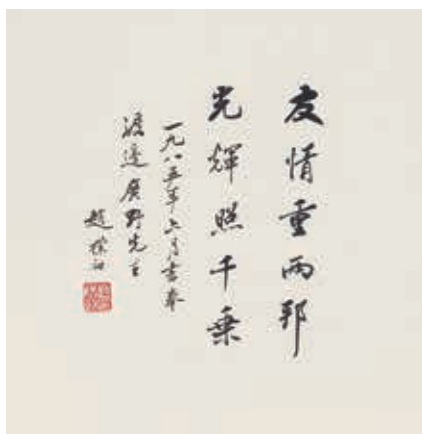 友情重两邦
光輝照千乗
一九八五年六月書奉
渡邊廣野先生
趙樸初